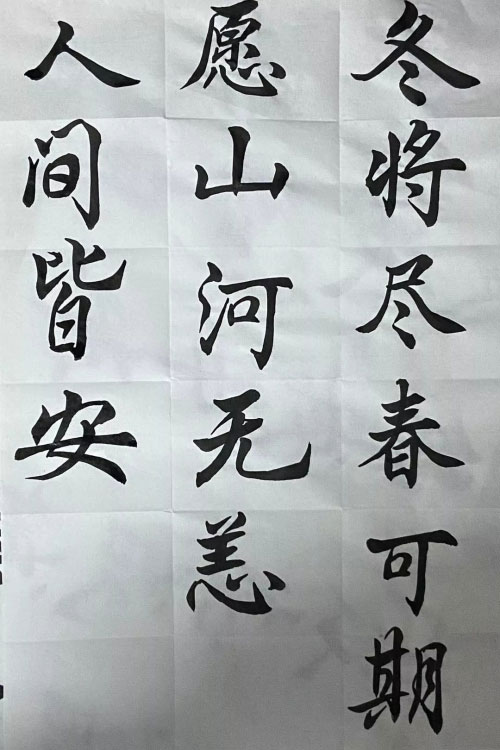 冬将尽春可期
愿山河无恙
人间皆安